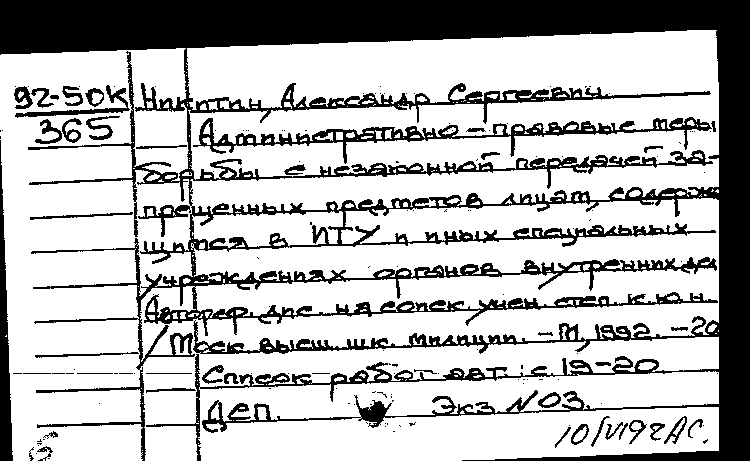 92-50К Никитин, Александр Сергеевич.
365 Административно-правовые меры
борьбы с незаконной передачей за-
прещенных предметов лицам, содержа
щимся в ИТУ и иных специальных
учреждениях органов внутренних дел
Автореф. дис. на соиск. учен. степ. к.ю.н.
/ Моск. высш. шк. милиции. - М., 1992. - 20
Список работ авт.: с. 19-20
Деп. Экз. N03.
10/VI92